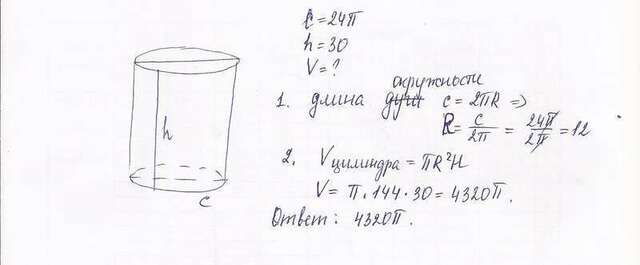 C = 24π
h = 30
V = ?
1. длина окружности c = 2πR ⇒
R = c/2π = 24π/2π = 12
2. Vцилиндра = πR²H
V = π · 144 · 30 = 4320π.
Ответ: 4320π.
h
c